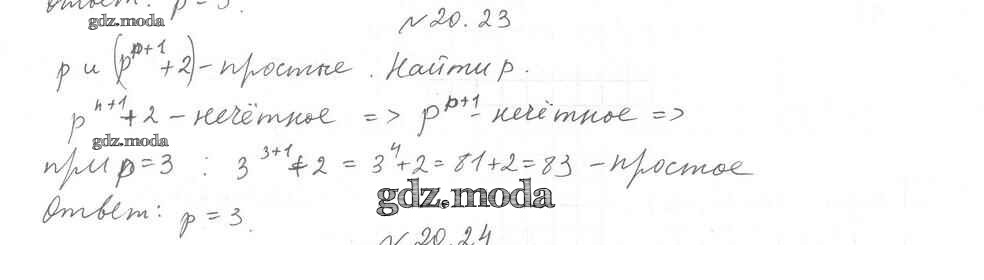 Ответ: p = 3.
gdz.moda
№ 20.23
p и (p^{p+1} + 2) – простые. Найти p.
p^{n+1} + 2 – нечётное => p^{p+1} – нечётное =>
gdz.moda
при p = 3 : 3^{3+1} + 2 = 3^4 + 2 = 81 + 2 = 83 – простое
gdz.moda
Ответ: p = 3.
№ 20.24